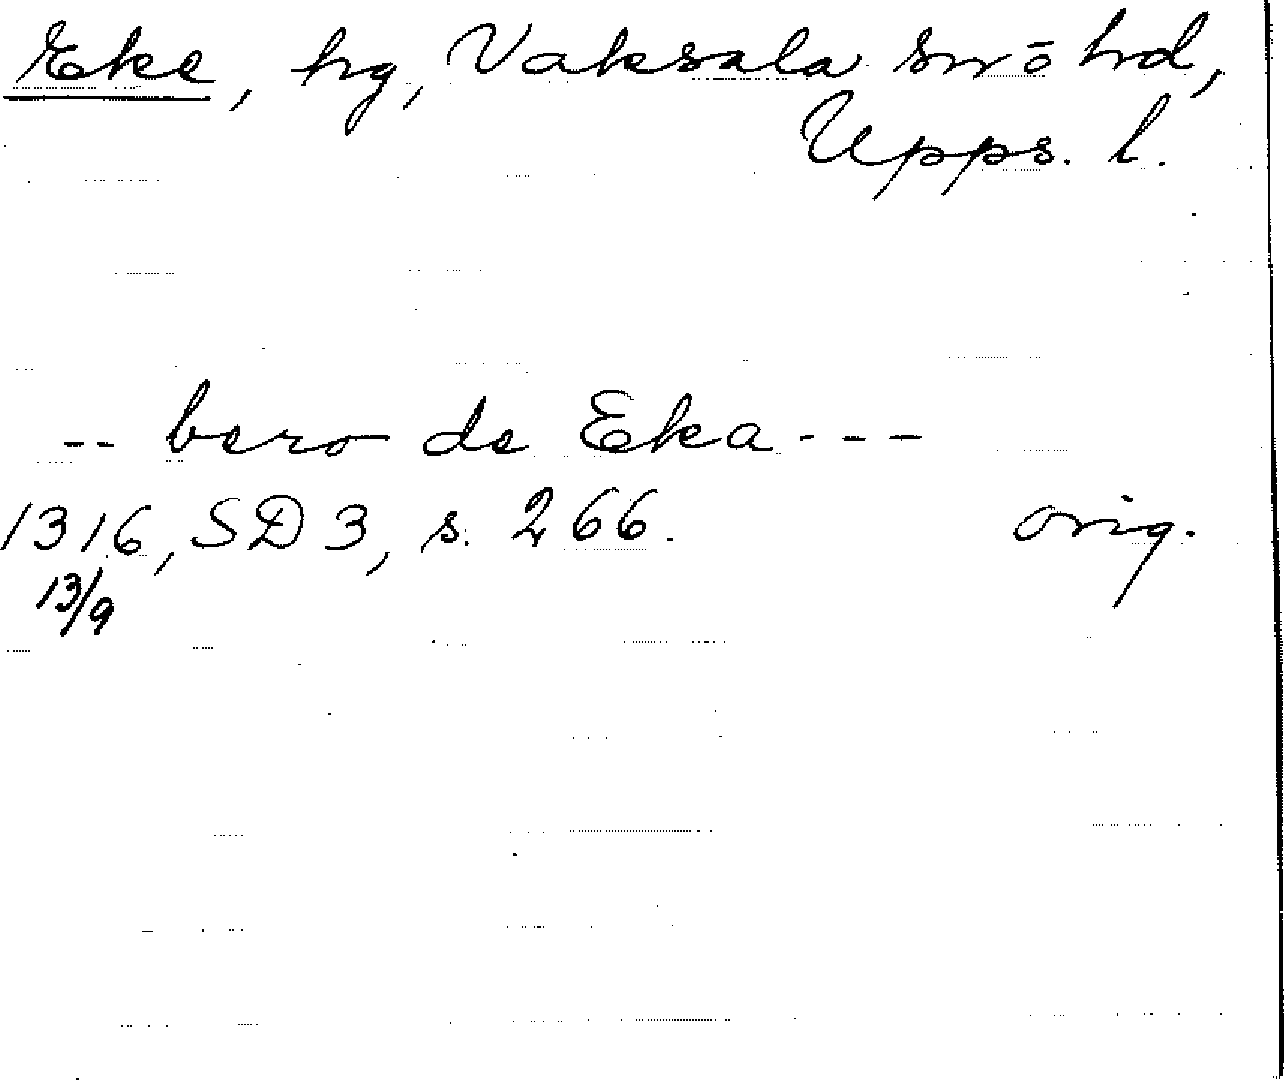 Eke, hg, Vaksala sn o hd,
Upps. l.
-- bero de Eka ---
1316, SD 3, s. 266. orig.
13/9